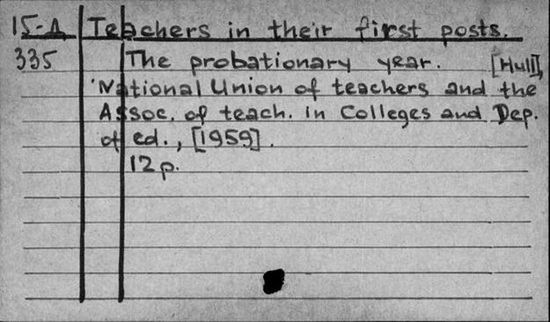 15-A Teachers in their first posts.
335 The probationary year. [Hull],
National Union of teachers and the
Assoc. of teach. in Colleges and Dep.
of ed., [1959].
12 p.